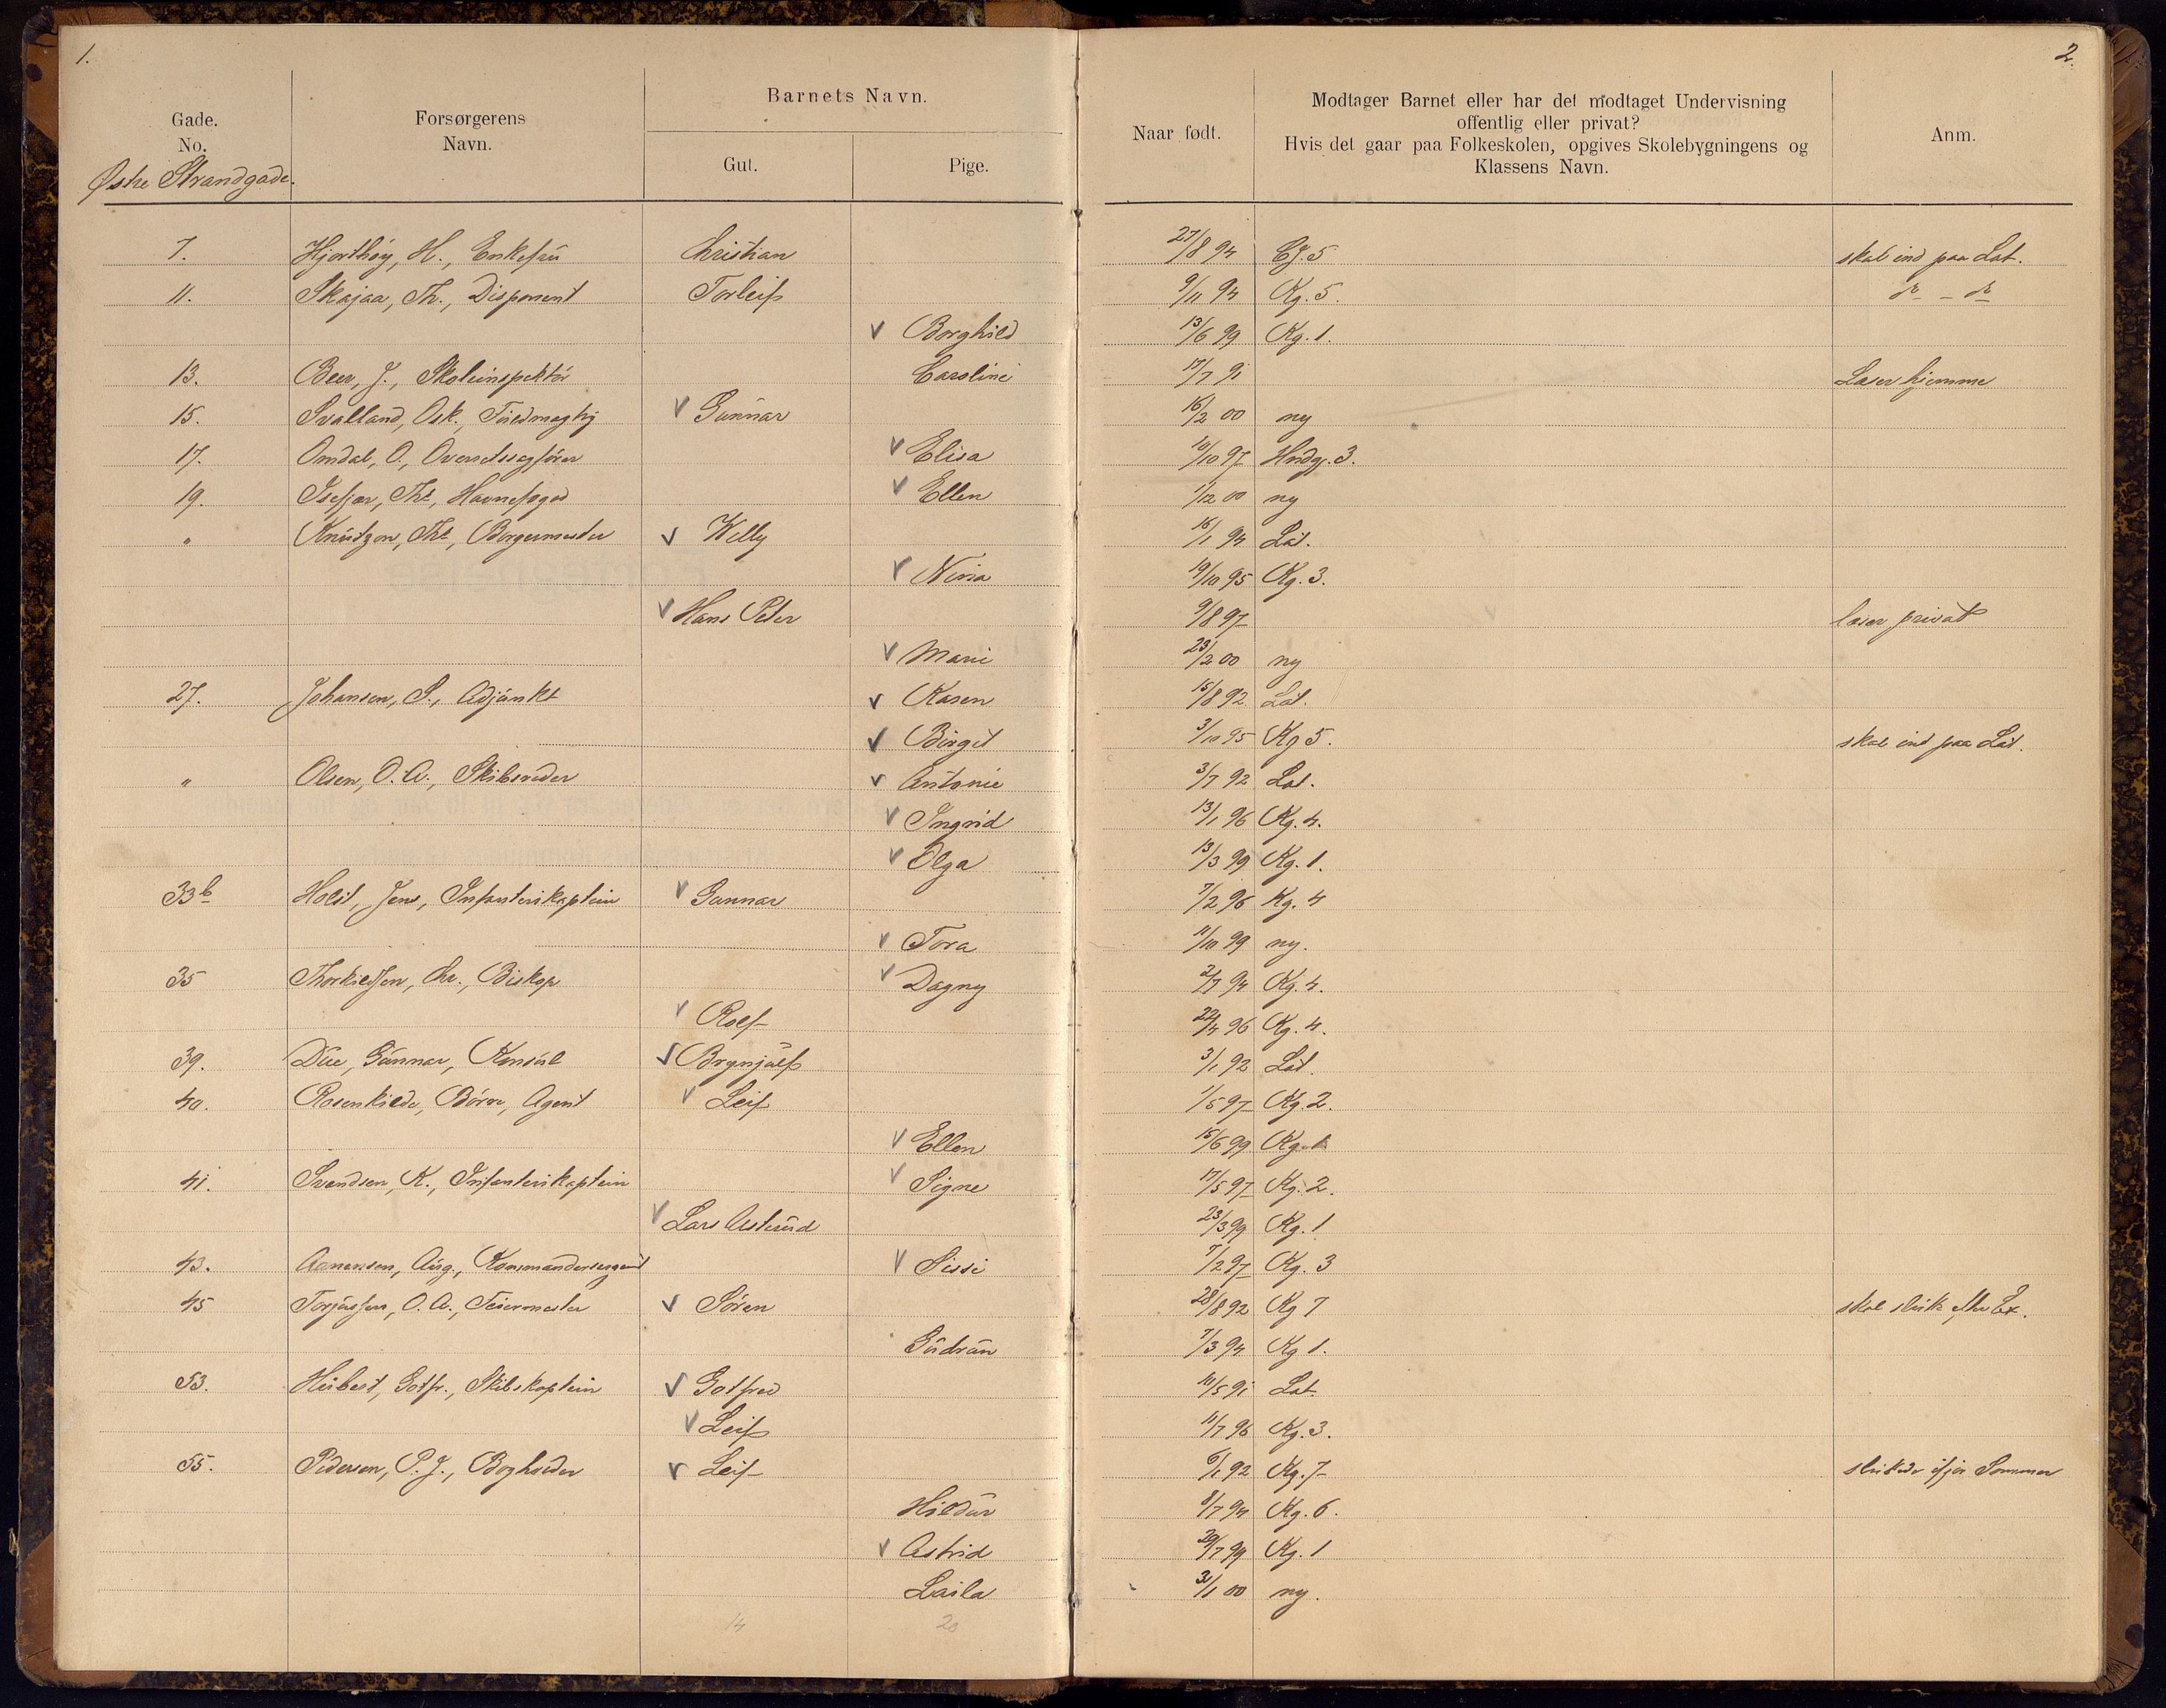 1.
2.
Gade.
No.
Forsørgerens
Navn.
Barnets Navn.
Gut.
Pige.
Naar født.
Modtager Barnet eller har det modtaget Undervisning
offentlig eller privat?
Hvis det gaar paa Folkeskolen, opgives Skolebygningens og
Klassens Navn.
Anm.
Østre Strandgade.
7. Hjorthøy, H., Enkefru Christian 27/8 94 Bg. 5 skal ind paa Lat.
11. Skajaa, Th., Disponent Torleif 9/11 94 Kg. 5. do - do
v Borghild 13/6 99 Kg. 1.
13. Beer, J., Skoleinspektør Caroline 17/7 91 Læser hjemme
15. Svalland, Osk., Fuldmægtig v Gunnar 16/2 00 ny
17. Omdal, O., Overretssagfører v Elisa 10/10 97 Hndg. 3.
19. Isefjær, Th., Havnefoged v Ellen 1/12 00 ny
" Knutzon, Th., Borgermester v Willy 16/1 94 Lat.
v Nina 19/10 95 Kg. 3.
v Hans Peter 9/8 97 læser privat
v Marie 23/2 00 ny
27. Johansen, S., Adjunkt v Karen 15/8 92 Lat.
v Birgit 3/10 95 Kg 5. skal ind paa Lat.
" Olsen, O. A., Skibsreder v Antonie 3/7 92 Lat.
v Ingrid 13/1 96 Kg. 4.
v Olga 13/3 99 Kg. 1.
33b Holst, Jens, Infanterikaptein v Gunnar 7/2 96 Kg. 4
v Tora 11/10 99 ny.
35 Thorkildsen, Chr., Biskop v Dagny 2/7 94 Kg. 4.
v Rolf 22/4 96 Kg. 4.
39. Due, Gunnar, Konsul v Brynjulf 3/1 92 Lat.
40. Rosenkilde, Børre, Agent v Leif 1/5 97 Kg. 2.
v Ellen 15/6 99 Kg. 1
41. Svendsen, K., Infanterikaptein v Signe 17/5 97 Kg. 2.
v Lars Asterud 23/3 99 Kg. 1
43. Aanensen, Aug., Kommandersergeant v Sissi 7/2 97 Kg. 3
45 Torjussen, O. A., Feiermester v Søren 28/8 92 Kg 7 skal slutte efter Ex.
Gudrun 7/3 94 Kg 1.
53. Hubert, Gotfr., Skibskaptein v Gotfred 11/5 91 Lat.
v Leif 11/7 96 Kg. 3.
55. Pedersen, P. J., Bogholder v Leif 6/1 92 Kg. 7 sluttede ifjor Sommer
Hildur 8/7 94 Kg. 6.
v Astrid 29/7 99 Kg. 1
Laila 31/1 00 ny.
14 20